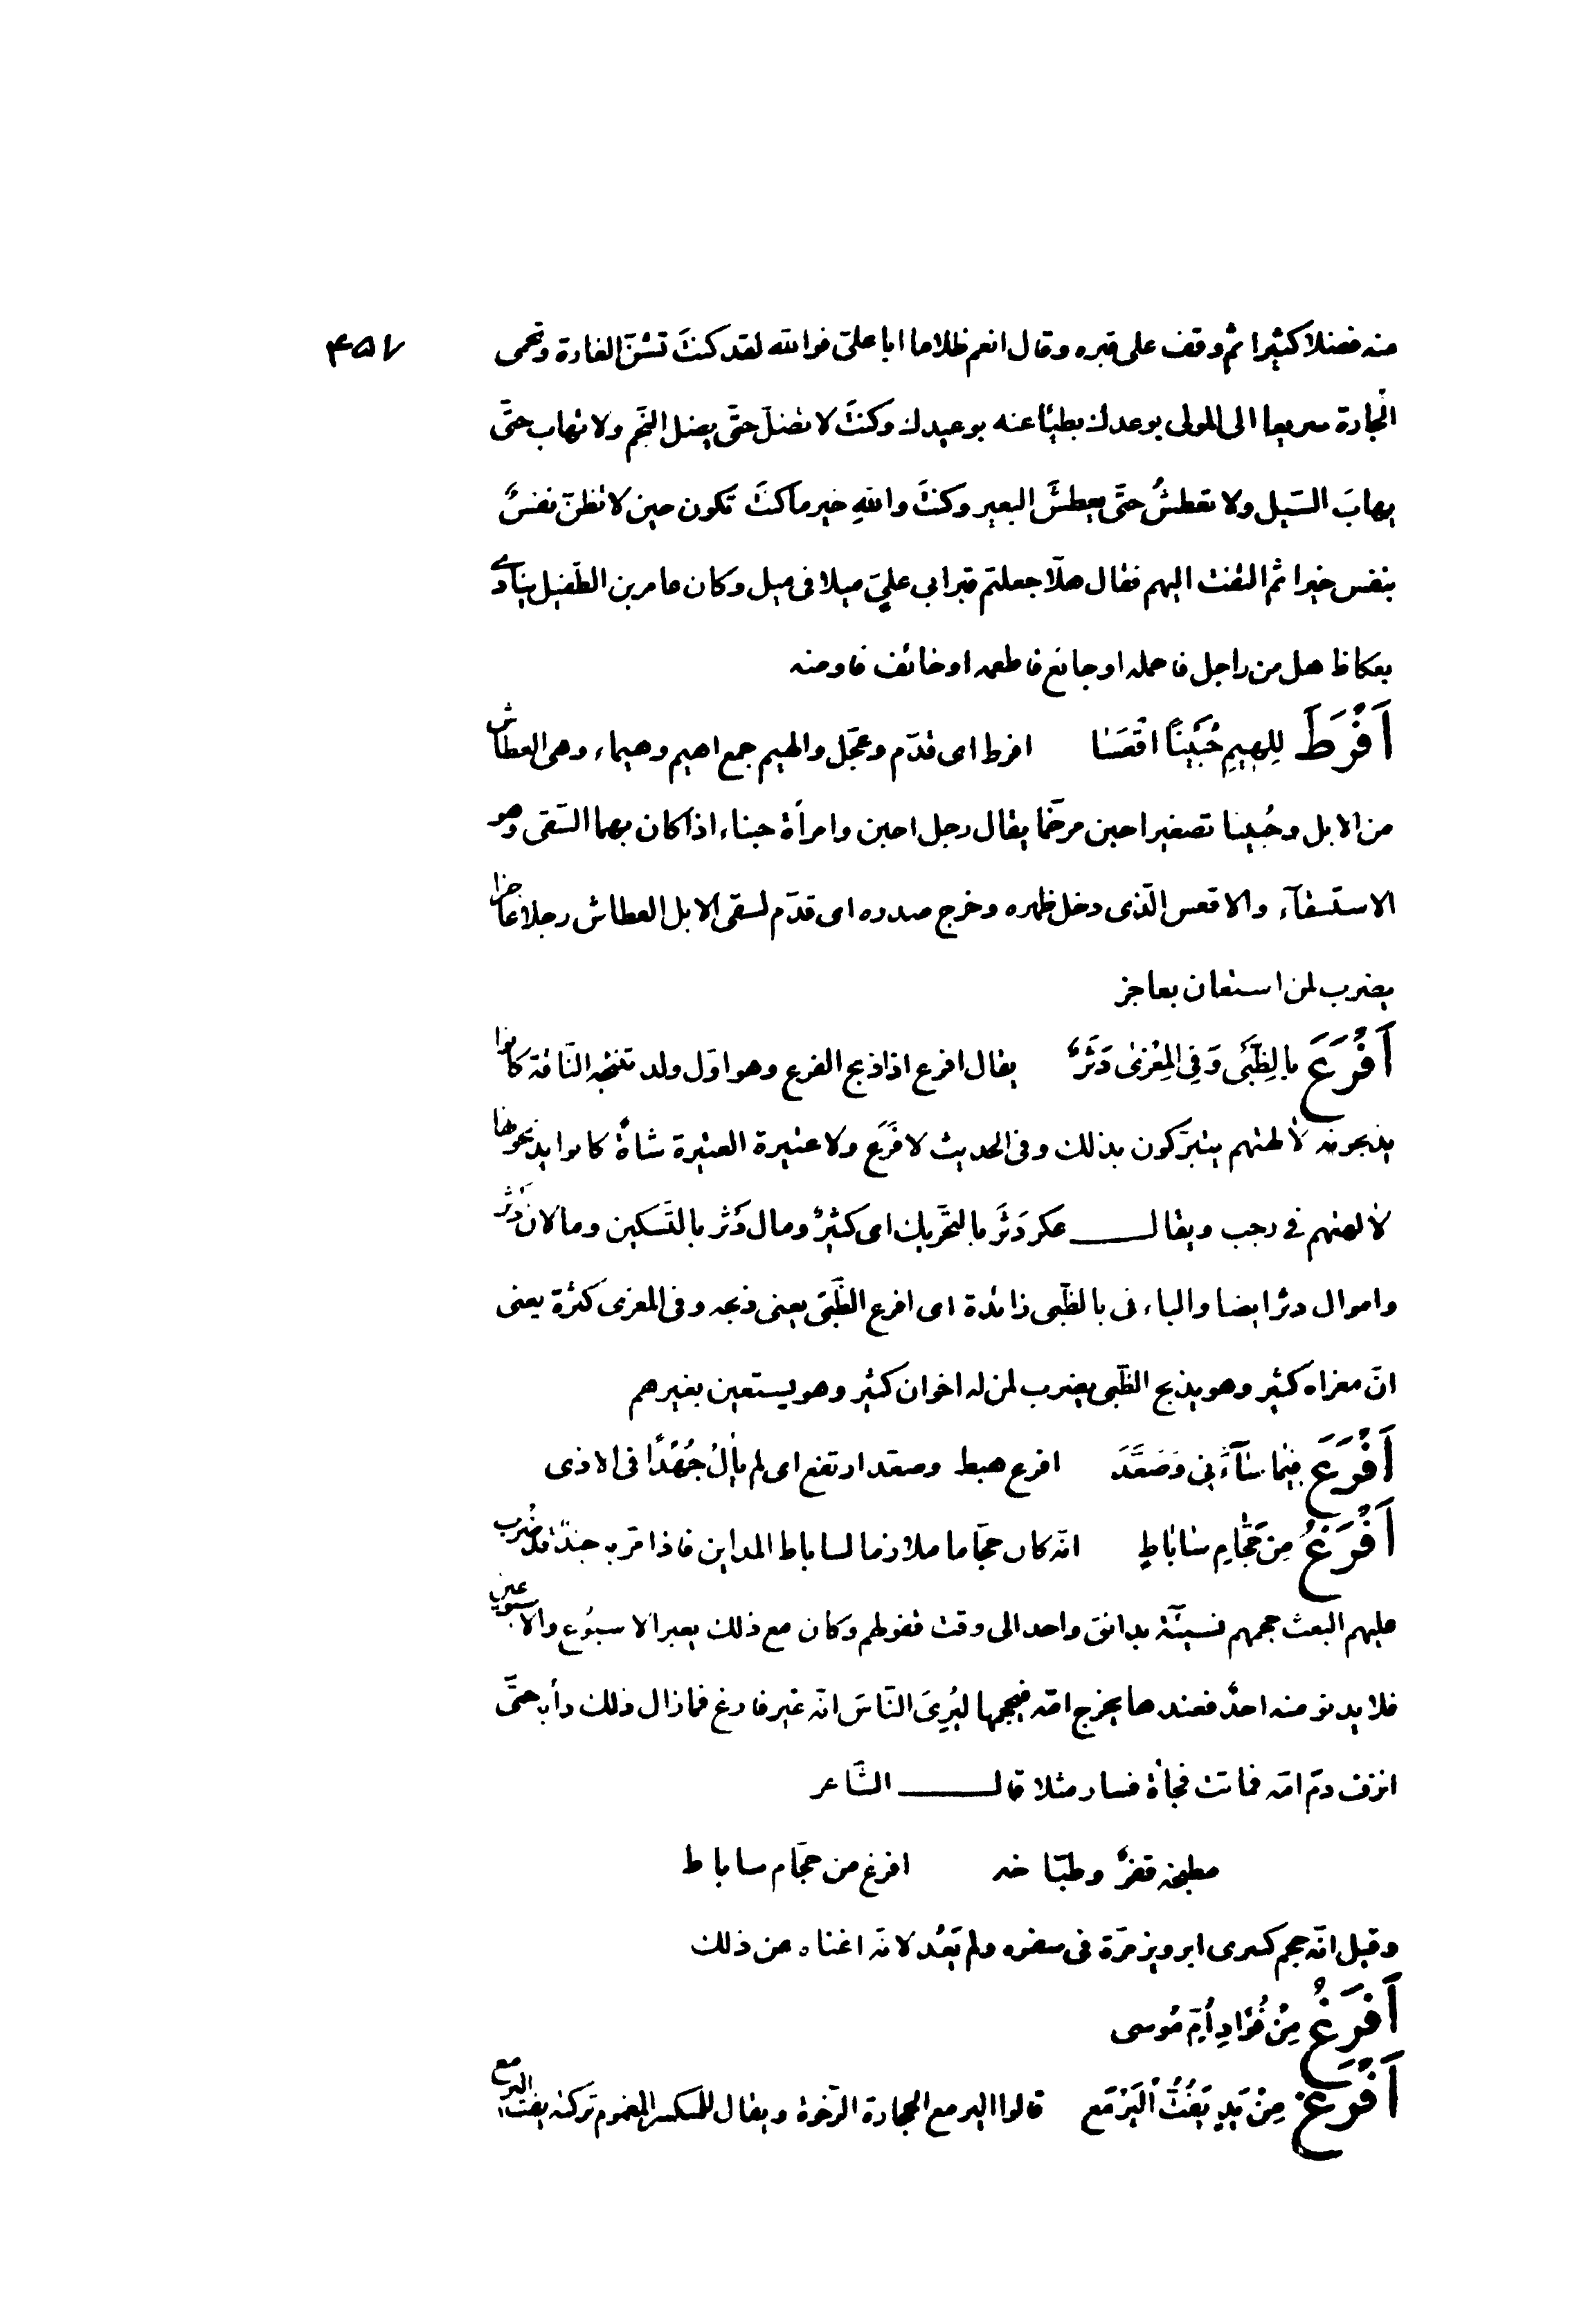 ٤٥٧
منه فضلا كثيرا ثم وقف على قبره وقال انعم ظلاما ابا علىّ فوالله لقد كنتَ تشنّ الغارة وتحمى
الجارة سريعا الى المولى بوعدك بطيئا عنه بوعيدك وكنتَ لا تضلّ حتّى يضل النّجم ولا تهاب حتّى
يهابَ السّيل ولا تعطشُ حتّى يعطشَ البعير وكنتَ واللهِ خير ما كنتَ تكون حين لا تظنّ نفسٌ
بنفس خيرا ثم التفت اليهم فقال هلّا جعلتم قبر ابى علىّ ميلا فى ميل وكان عامر بن الطّفيل ينادى
بعكاظ هل من راجل فاحمله او جائع فاطعمه او خائف فاومنه
اَفْرَطَ لِلهِيمِ حُبَيْنًا اقْعَسَا افرط اى قدّم وعجّل والهيم جمع اهيم وهيماء وهى العطاش
من الابل وحُبينا تصغير احبن مرخّما يقال رجل احبن وامرأة حبناء اذا كان بهما السّقى وهو
الاستسقآء والاقعس الّذى دخل ظهره وخرج صدره اى قدّم لسقى الابل العطاش رجلا عاجزا
يضرب لمن استعان بعاجز
اَفْرَعَ بالِظَّبْىِ وَفِى المِعْزىٰ دَثَرٌ يقال افرع اذا ذبح الفرع وهو اوّل ولد تنتجه النّاقة كانوا
يذبحونه لآلهتهم يتبرّكون بذلك وفى الحديث لا فَرَع ولا عتيرة العتيرة شاةٌ كانوا يذبحونها
لآلهتهم فى رجب ويقال عكر دَثَر بالتحّريك اى كثيرٌ ومال دَثْر بالتّسكين ومالان دَثْر
واموال دثر ايضا والباء فى بالظّبى زائدة اى افرع الظّبىَ يعنى ذبحه وفى المعزى كثرة يعنى
انّ معزاه كثير وهو يذبح الظّبى يضرب لمن له اخوان كثير وهو يستعين بغيرهم
اَفْرَعَ فِيمٰا سٰآءَنِى وَصَعَّدَ افرع هبط وصعّد ارتفع اى لم يألُ جُهْدًا فى الاذى
اَفْرَغُ مِنْ حَجّٰامِ سٰابٰاطٍ انّه كان حجّاما ملازما لساباط المداين فاذا مرّ به جندٌ قد ضُرب
عليهم البعث حجمهم نسيئةً بدانق واحد الى وقت قفولهم وكان مع ذلك يعبر الاسبُوع والاسبوعين
فلا يدنو منه احدٌ فعندها يخرج امّه فيحجمها ليُرِىَ النّاسَ انّه غير فارغ فما زال ذلك دأبه حتّى
انزف دمّ امّه فماتت فجأة فسار مثلا قال الشّاعر
مطبخه قفرٌ وطبّاخه افرغ من حجّام ساباط
وقيل انّه حجم كسرى ابرويز مرّة فى سفره ولم يَعُد لانّه اغناه عن ذلك
اَفْرَغُ مِنْ فُؤادِ اُمِّ مُوسى
اَفْرَغُ مِنْ يَدٍ تَفُتُّ اْليَرْمَع قالوا اليرمع الحجارة الرّخوة ويقال للمنكسر المغموم تركته يفت اليرمع